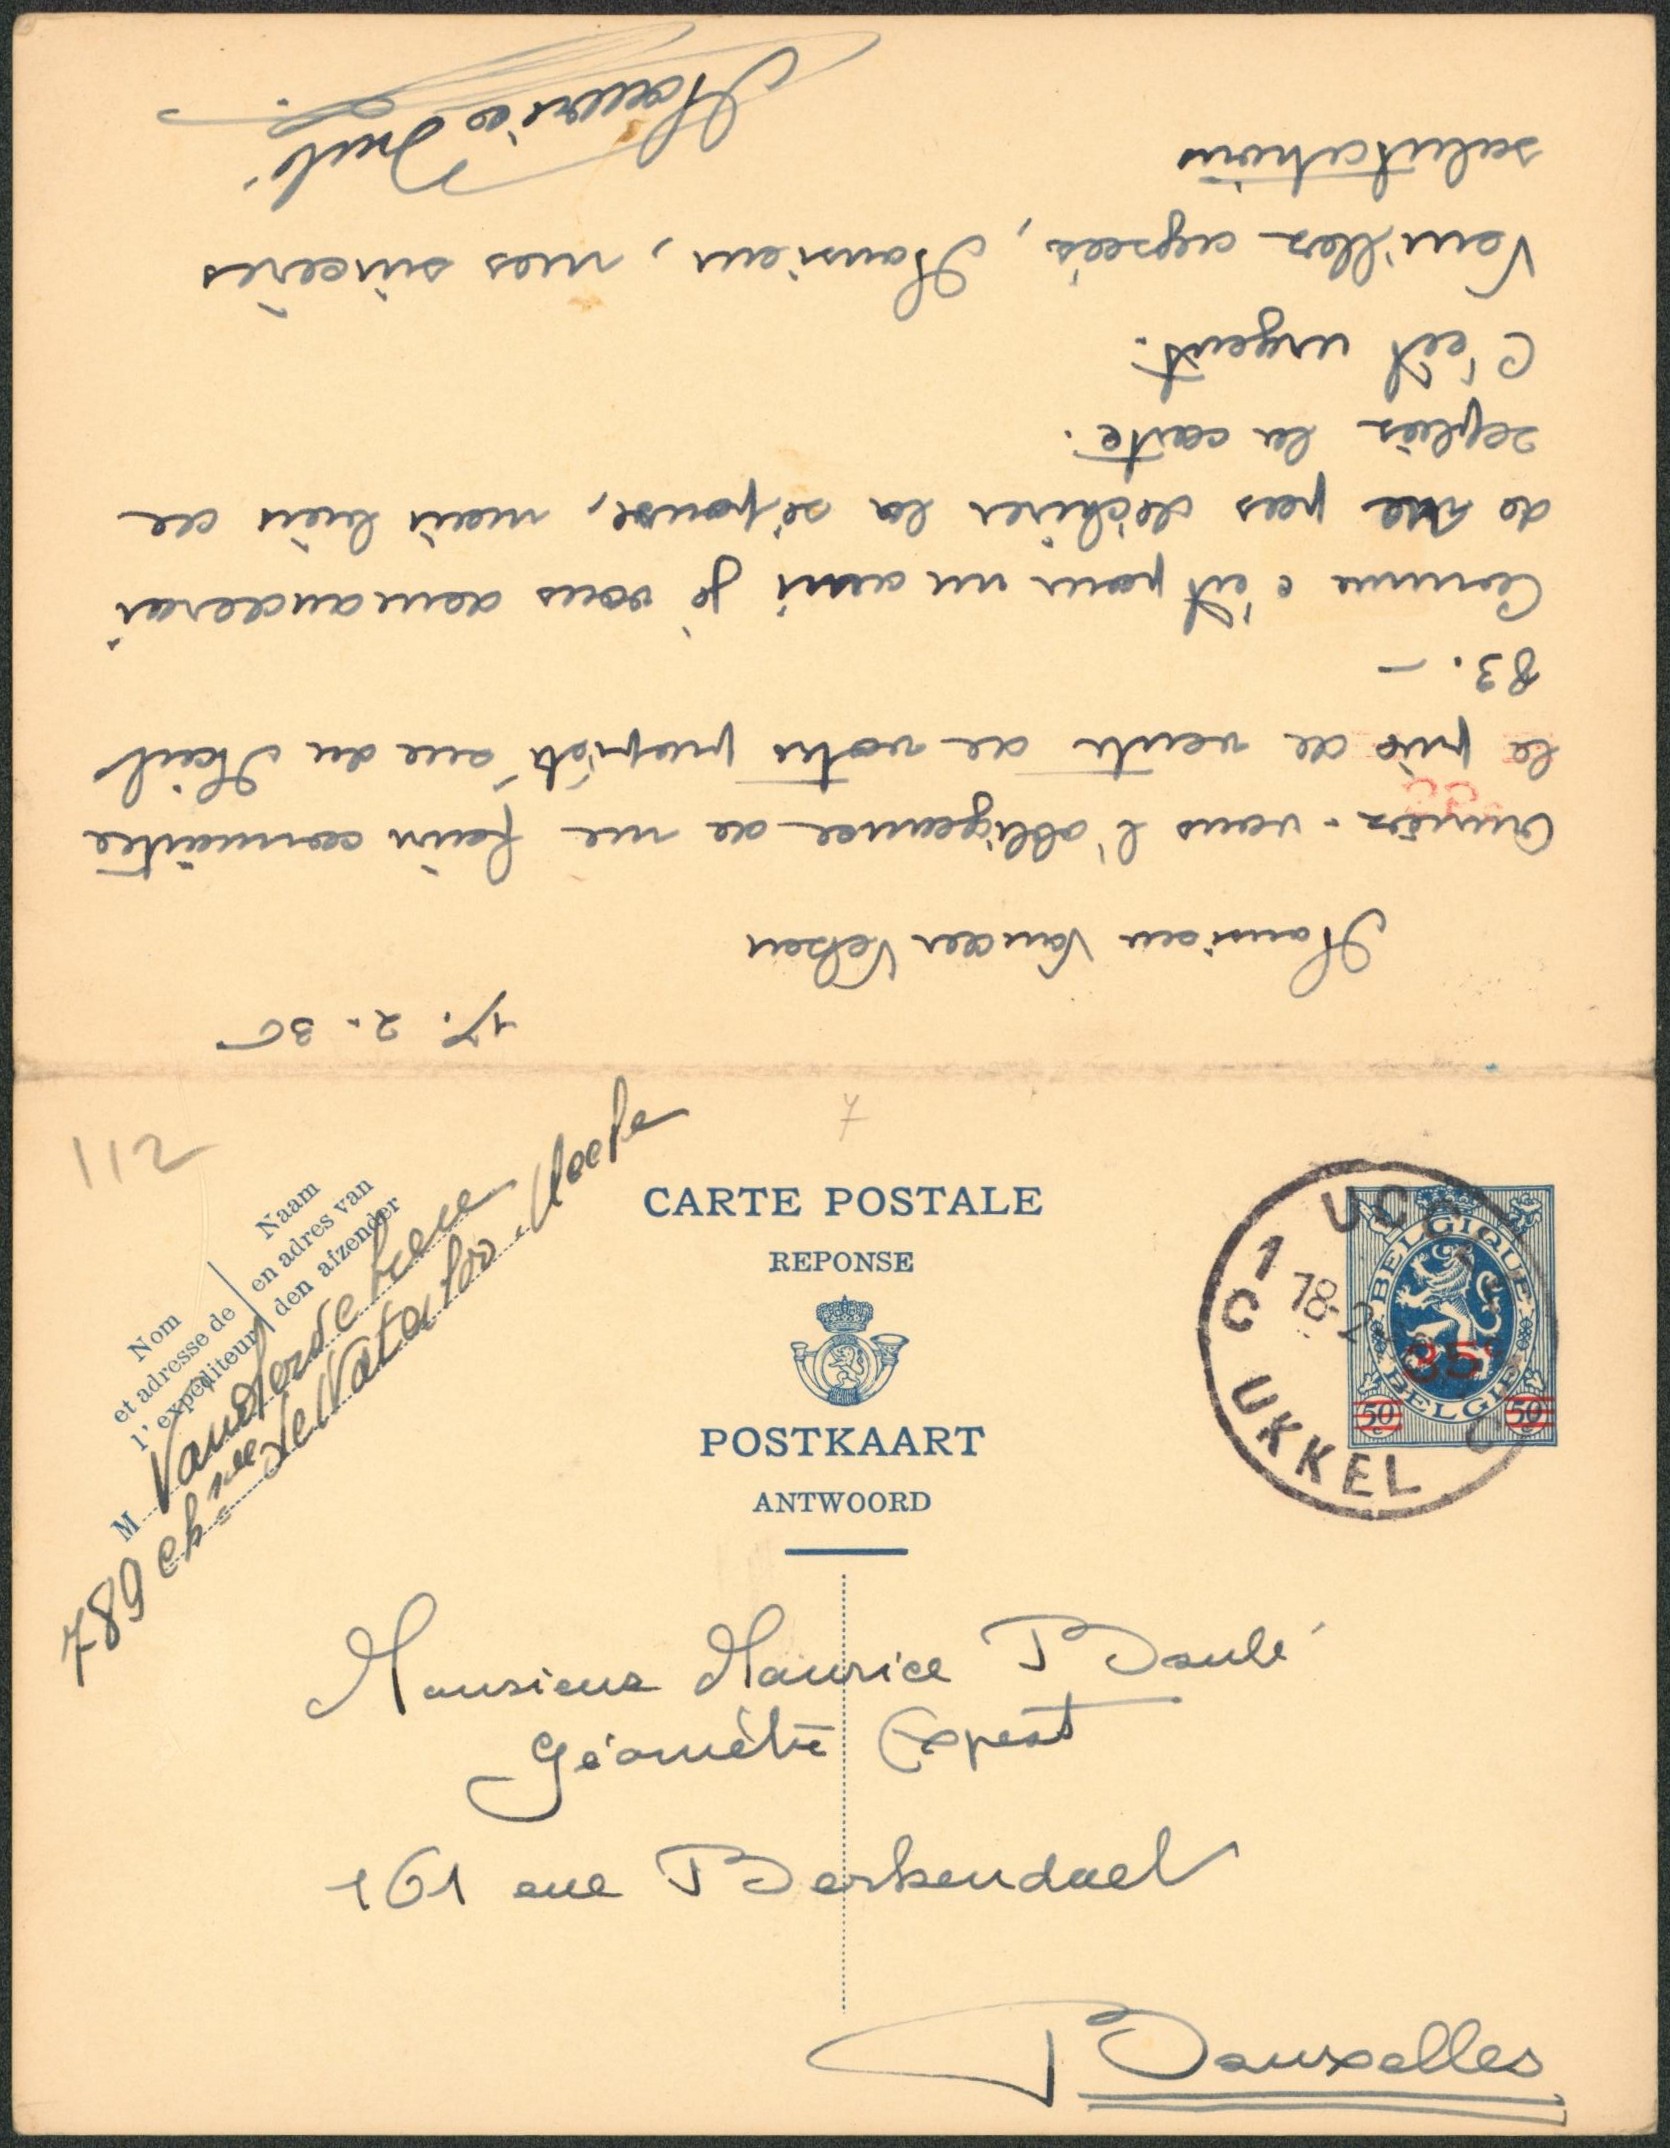 17. 2. 36
Monsieur Vander Veken
Auriez-vous l'obligeance de me faire connaître
le prix de vente de votre propriété rue du
83.-
Comme c'est pour un ami je vous demanderai
de ne pas déchirer la réponse, mais bien de
replier la carte.
C'est urgent.
Veuillez agréer, Monsieur, mes sincères
salutations
Maurice
112
7
Nom
et adresse de
l'expéditeur
Naam
en adres van
den afzender
M
789 ch ée de Waterloo
CARTE POSTALE
REPONSE
POSTKAART
ANTWOORD
BELGIQUE
BELGIE
35c
50c
50c
UCCLE
1 C
18-2
UKKEL
Monsieur Maurice
Géomètre Expert
161 rue Berkendael
Bruxelles